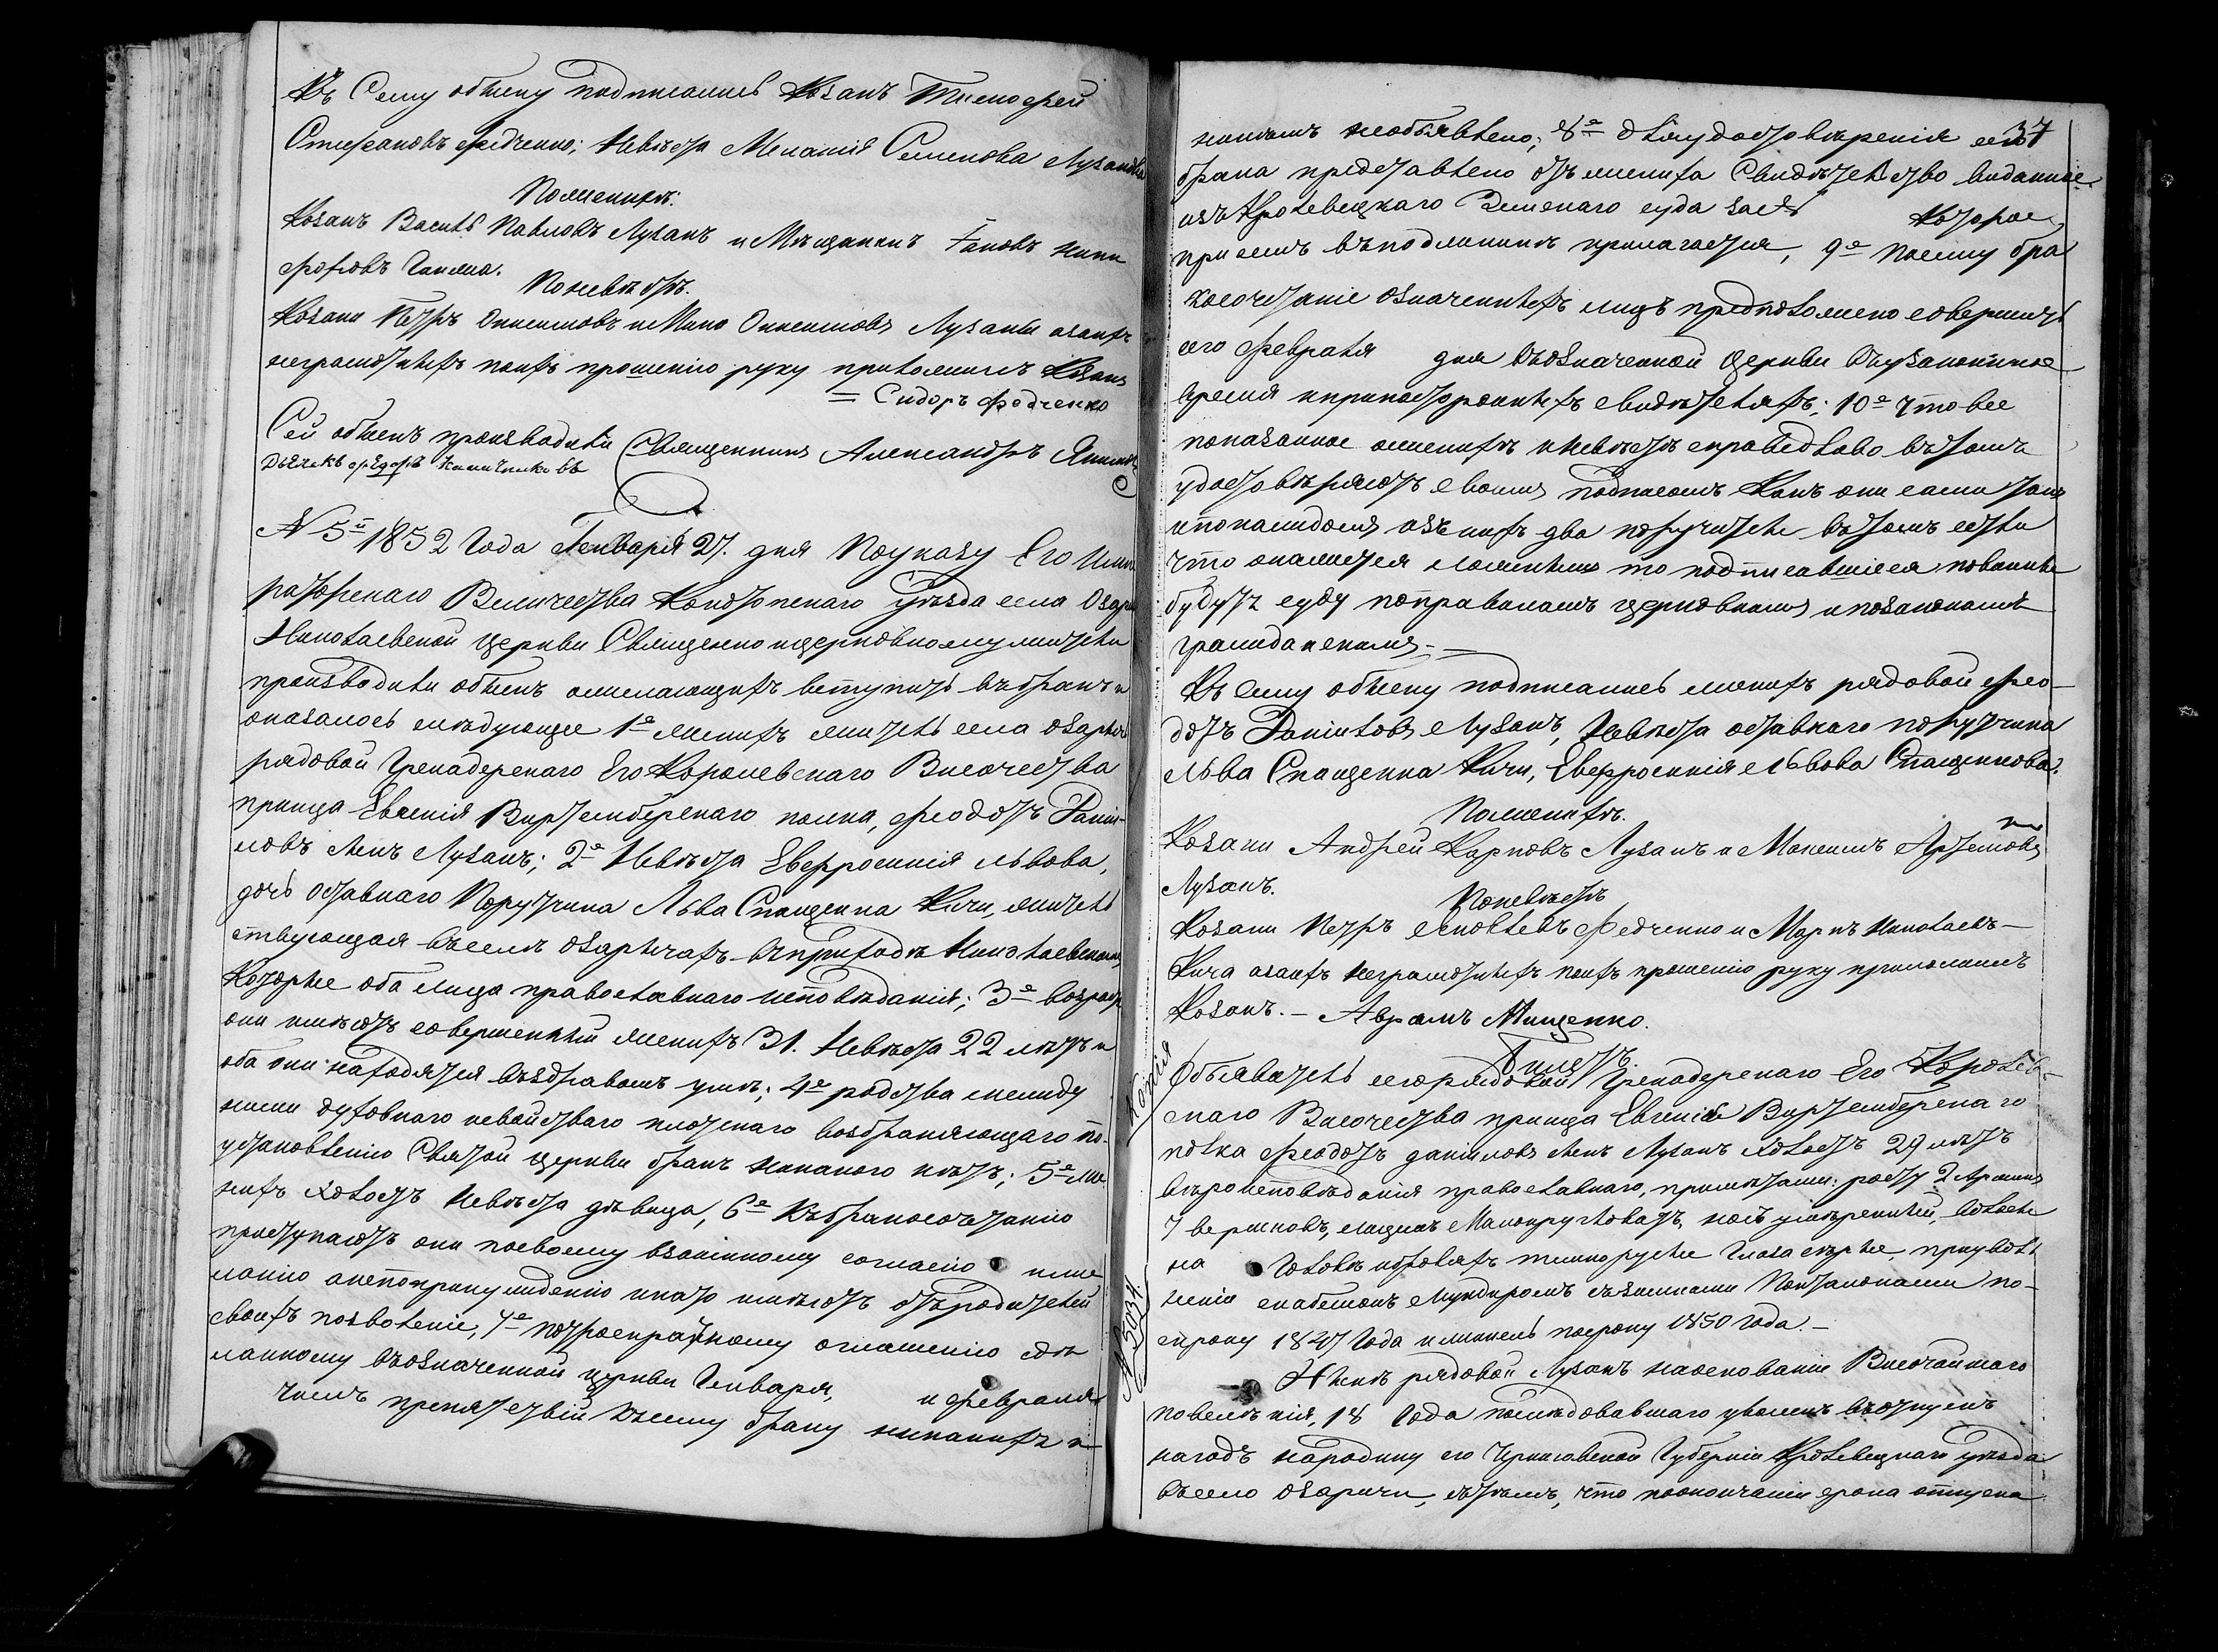 Къ Сему обыску подписались Козакъ Тимофей
Стефановъ Федченко; Невѣста Меланія Семенова Лузанова
Поженихѣ:
Козакъ Василь Павловъ Лузанъ и Мѣщанинъ Іаковъ Ники
форовъ
Поневѣстѣ.
Козаки Петръ Онисимовъ и Онисимовъ Лузаны азанихъ
неграмотныхъ поихъ прошенію руку приложилъ Козакъ
= Сидоръ Федченко
Сей обыскъ производили Священникъ Александръ
Дьячекъ Федоръ
№ 5й 1852 Года Генваря 27. дня Поуказу Его Импе
раторскаго Величества Конотопскаго уѣзда села Озари
Николаевской Церкви Священно ицерковнослужители
производили обыскъ ожелающихъ вступить вбракъ и
оказалось слѣдующее 1е Женихъ житель села озарич
рядовой Гренадерскаго Его Королевскаго Височества
принца Евгенія Виртембергскаго полка, Феодотъ Даніи-
ловъ сынъ Лузанъ; 2е Невѣста Евфросинія Львова,
дочь отавнаго Поручика Льва Спащенка Кичи, житель
ствующая вселѣ озаричахъ вприходѣ Николаевскомъ
Которые оба лица православнаго исповѣданія; 3е возрастъ
они имѣютъ совершенный женихъ 31. Невѣста 22 лѣтъ и
оба они находятся вздравомъ умѣ; 4е родства между
ними духовнаго невойстваго плотскаго возбраняющаго по-
установленію Святой церкви бракъ никакого нѣтъ; 5е Же
нихъ холостъ Невѣста дѣвица, 6е Кбракосочетанію
приступаютъ они посвоему взаимному согласію иже
ланію анепопринужденію инато имѣютъ отъродителей
своихъ позволеніе, 7е Потроекратному оглашенію сдѣ
ланному въозначенной церкви Генваря, и Февраля
чиселъ препятствій ксему браку никакихъ и
37
никѣмъ необъявлено; 8е Дляудостовѣренія сего
брака представлено отъ жениха Свидѣтельство виданное
изъ Кролевецкаго Земскаго суда Которое
при семъ въподлинникѣ прилагается, 9е Посему бра
косочетаніе означенныхъ лицъ предположено совершить
сего Февраля дня въозначенной церкви въузаконенное
время иприпостороннихъ свидѣтеляхъ; 10е Что все
показанное оженихѣ иневѣстѣ справедливо въ томъ
удостовѣряютъ своимъ подписомъ Какъ они сами такъ
ипокаждомъ изъ нихъ два поручителе въ томъ если
что окажется ложнымъ то подписавшіеся повинны
будутъ суду поправиламъ церковнымъ ипозаконамъ
гражданскимъ.-
Къ Сему обыску подписались женихъ рядовой Фео-
дотъ Даніиловъ Лузанъ, Невѣста отавнаго поручика
Льва Спащенка Кичи, Евфросинія Львова Спащенкова.
Поженихѣ.
Козаки Андрей Карповъ Лузанъ и Максимъ Артемовъ
Лузанъ.
Поневѣстѣ
Козаки Петръ Яковлевъ Федченко и Маркъ Николаевъ-
Кича азанихъ неграмотныхъ поихъ прошенію руку приложилъ
Козакъ.- Аврамъ Мищенко.
Копія
Билетъ
Объявитель сего рядовой Гренадерскаго Его Королев-
скаго Височества принца Евгенія Виртембергскаго
полка Феодотъ даніиловъ сынъ Лузанъ холостъ 29 лѣтъ
вѣроисповѣданія православнаго, примѣтами: росту 2 Аршина
7 вершковъ, лицемъ Малокругловатъ, носъ умѣренный, волосы
на Головѣ ибровяхъ темнорусые Глаза сѣрые, приуволь
неніи снабженъ Мундиромъ съзимними Понталонами по-
сроку 1847 Года ишинель посроку 1850 Года.-
№ 5034
Ныне рядовой Лузанъ наоснованіи Височайшаго
повелѣнія, 18 Года послѣдовавшаго уволенъ въотпускъ
нагодъ народину его Черниговской Губерніи Кролевецкаго уѣзда
въсело озаричи, сътѣмъ, что поокончаніи срока отпуска